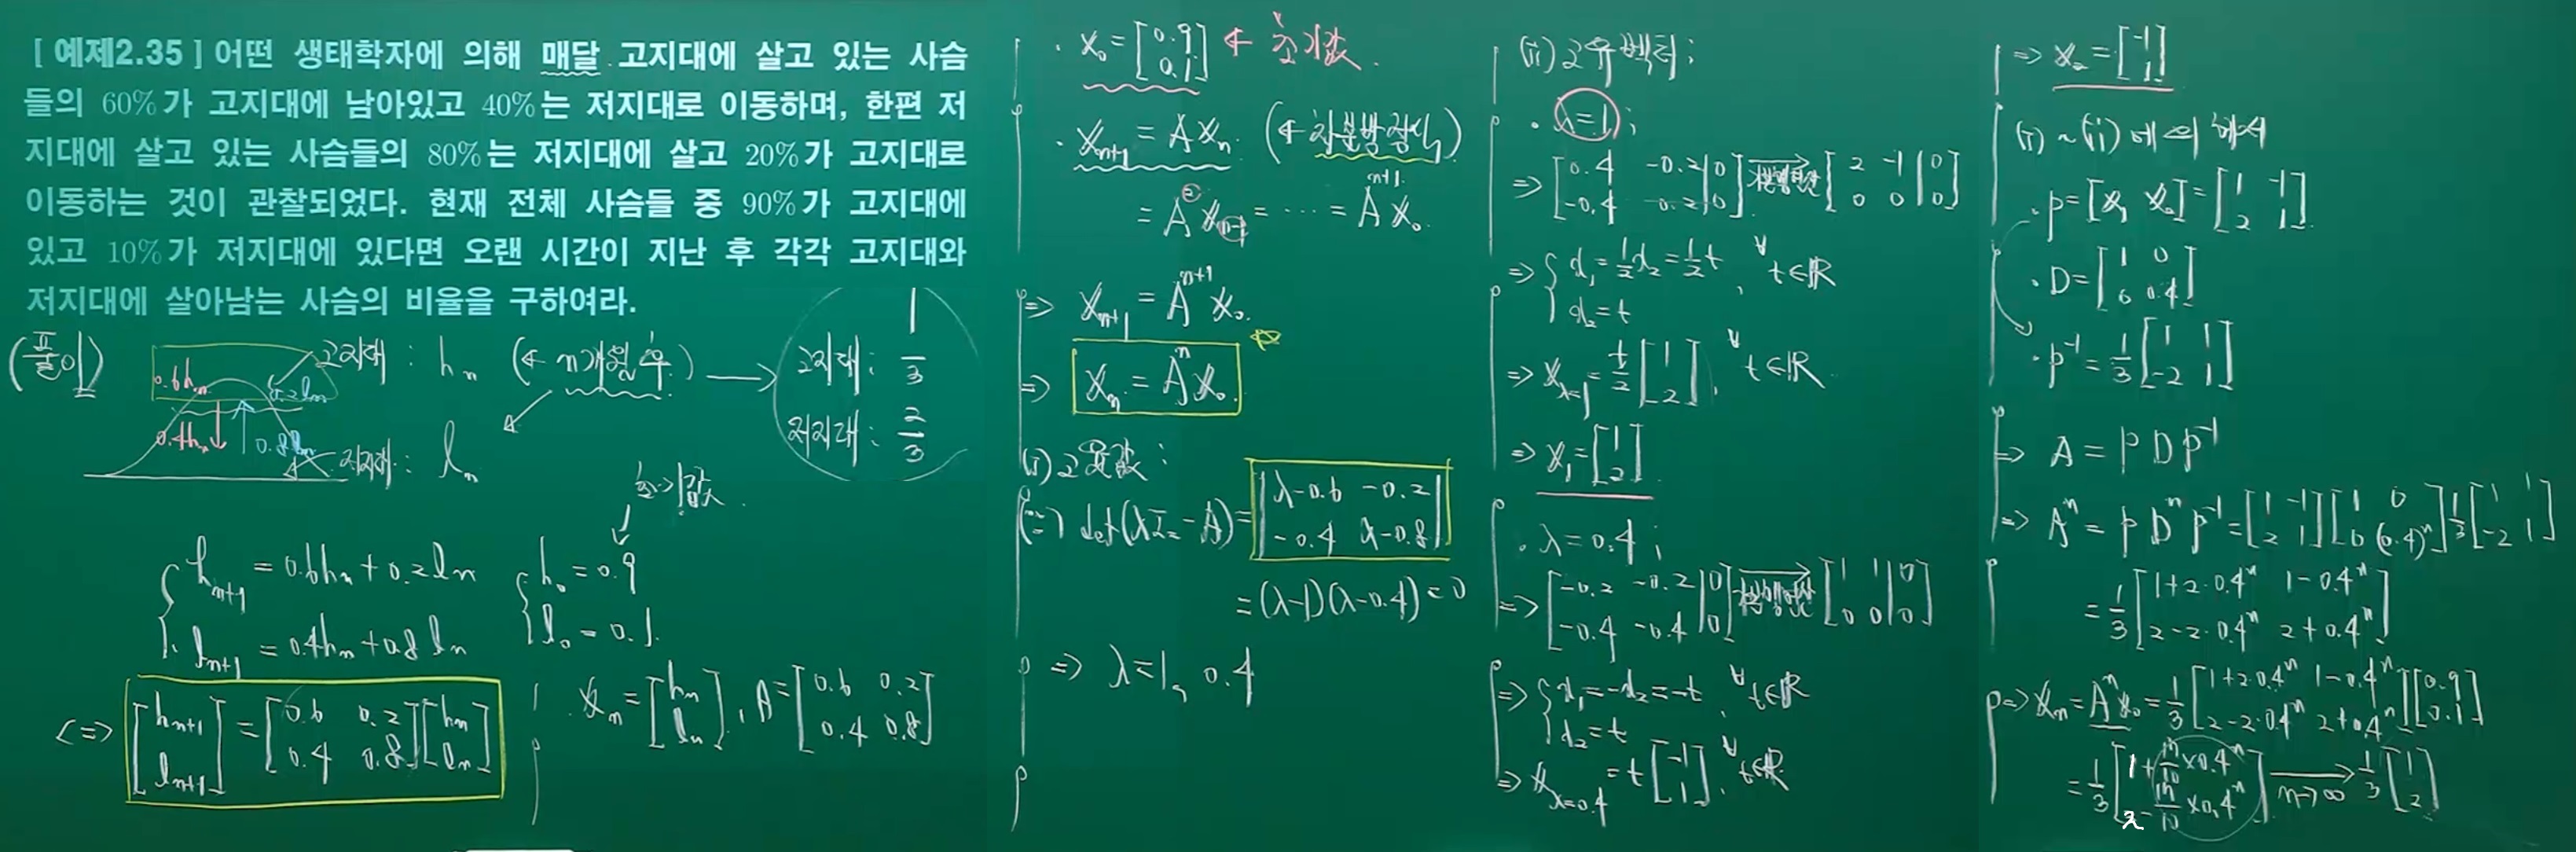 [ 예제2.35 ] 어떤 생태학자에 의해 매달 고지대에 살고 있는 사슴
들의 60%가 고지대에 남아있고 40%는 저지대로 이동하며, 한편 저
지대에 살고 있는 사슴들의 80%는 저지대에 살고 20%가 고지대로
이동하는 것이 관찰되었다. 현재 전체 사슴들 중 90%가 고지대에
있고 10%가 저지대에 있다면 오랜 시간이 지난 후 각각 고지대와
저지대에 살아남는 사슴의 비율을 구하여라.
(풀이)
0.6hₙ 0.2lₙ
0.4hₙ 0.8lₙ
고지대 : hₙ (← n개월 후) →
저지대 : lₙ
고지대 : 1/3
저지대 : 2/3
초기값
{ hₙ₊₁ = 0.6hₙ + 0.2lₙ
lₙ₊₁ = 0.4hₙ + 0.8lₙ
{ h₀ = 0.9
l₀ = 0.1
<=> [hₙ₊₁; lₙ₊₁] = [0.6 0.2; 0.4 0.8][hₙ; lₙ]
xₙ = [hₙ; lₙ], A = [0.6 0.2; 0.4 0.8]
· x₀ = [0.9; 0.1] ← 초기값
· xₙ₊₁ = Axₙ (← 차분방정식)
= A²xₙ₋₁ = ⋯ = Aⁿ⁺¹x₀
=> xₙ₊₁ = Aⁿ⁺¹x₀
=> xₙ = Aⁿx₀
(i) 고윳값 :
det(λI₂ - A) = |λ-0.6 -0.2; -0.4 λ-0.8|
= (λ-1)(λ-0.4) = 0
=> λ = 1, 0.4
(ii) 고유벡터 ;
· λ = 1 ;
=> [0.4 -0.2 | 0; -0.4 -0.2 | 0] → [2 -1 | 0; 0 0 | 0]
=> { x₁ = 1/2 x₂ = 1/2 t, ∀t∈ℝ
x₂ = t
=> x_λ=1 = t/2 [1; 2], ∀t∈ℝ
=> x₁ = [1; 2]
· λ = 0.4 ;
=> [-0.2 -0.2 | 0; -0.4 -0.4 | 0] → [1 1 | 0; 0 0 | 0]
=> { x₁ = -x₂ = -t, ∀t∈ℝ
x₂ = t
=> x_λ=0.4 = t[-1; 1], ∀t∈ℝ
=> x₂ = [-1; 1]
(i) ~ (ii) 에 의해서
· P = [x₁ x₂] = [1 -1; 2 1]
· D = [1 0; 0 0.4]
· P⁻¹ = 1/3 [1 1; -2 1]
=> A = PDP⁻¹
=> Aⁿ = PDⁿP⁻¹ = [1 -1; 2 1][1 0; 0 (0.4)ⁿ] 1/3 [1 1; -2 1]
= 1/3 [1+2·0.4ⁿ 1-0.4ⁿ; 2-2·0.4ⁿ 2+0.4ⁿ]
=> xₙ = Aⁿx₀ = 1/3 [1+2·0.4ⁿ 1-0.4ⁿ; 2-2·0.4ⁿ 2+0.4ⁿ][0.9; 0.1]
= 1/3 [1+17/10×0.4ⁿ; 2-17/10×0.4ⁿ] → n→∞ 1/3 [1; 2]